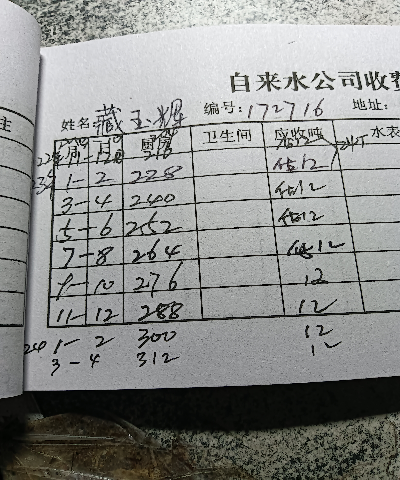 自来水公司收费
姓名 藏玉辉 编号: 172716 地址:
月 月 厨房 卫生间 应收吨 水表
11-12 216 估12
1-2 228 估12
3-4 240 估12
5-6 252 估12
7-8 264 估12
9-10 276 12
11-12 288 12
24 1-2 300 12
3-4 312 12
主